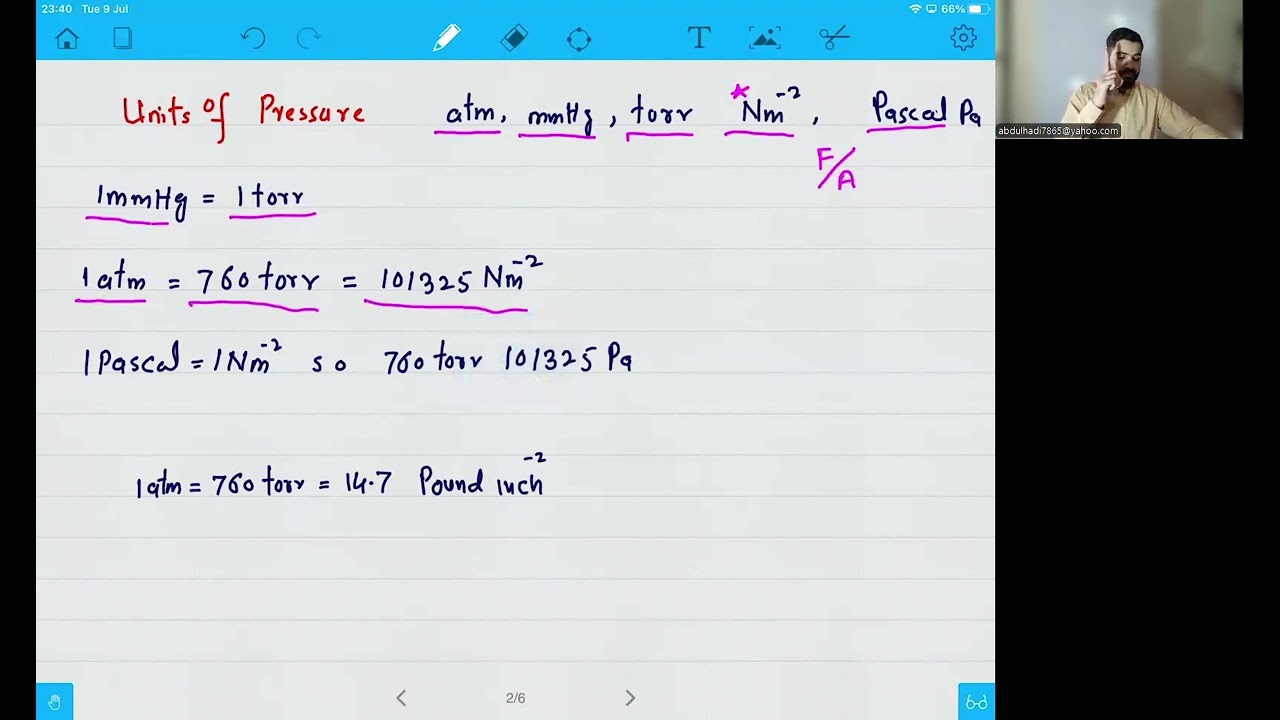 23:40 Tue 9 Jul 66%
T
Units of Pressure atm, mmHg, torr *Nm⁻², Pascal Pa
F/A
1mmHg = 1 torr
1 atm = 760 torr = 101325 Nm⁻²
1 Pascal = 1 Nm⁻² so 760 torr 101325 Pa
1 atm = 760 torr = 14.7 Pound inch⁻²
2/6
abdulhadi7865@yahoo.com